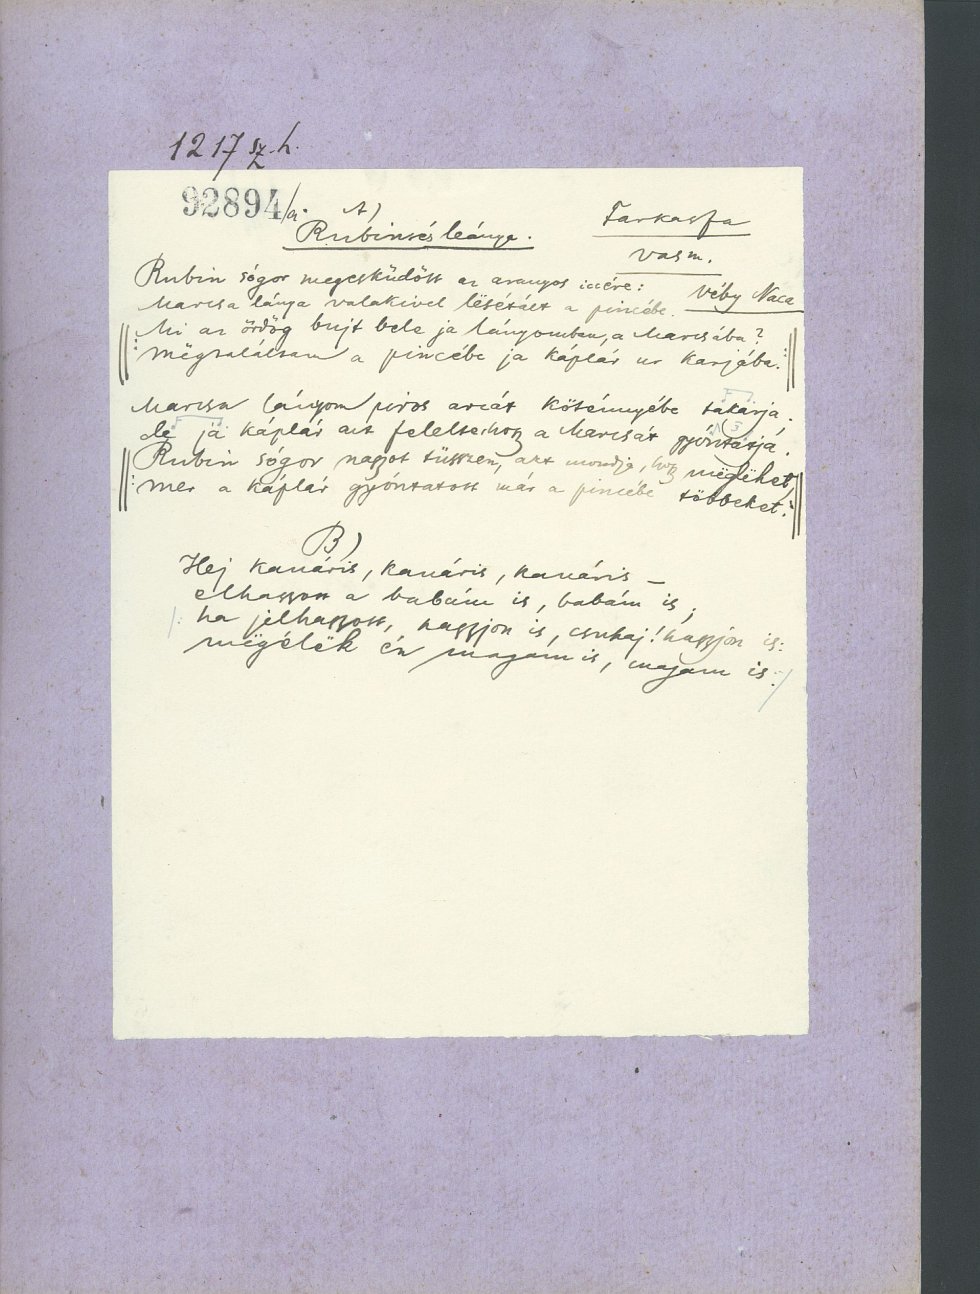 1217 sz. h.
92894/a.
A)
Rubinné's leánya.
Farkasfa
vasm.
Véby Naca
Rubin sógor megesküdött az aranyos iccére:
Marcsa lánya valakivel lesétált a pincébe.
Mi az ördög bujt bele ja lányomban, a Marcsába?
mëgtaláltam a pincébe ja káplár ur karjába.
Marcsa lányom piros arcát kötényébe takarja.
de ja káplár azt felelte: hogy a Marcsát gyóntatja.
Rubin sógor nagyot tüsszen, azt mondja, hogy mëglëhet,
mer a káplár gyóntatott már a pincébe többeket.
B)
Hej kanáris, kanáris, kanáris –
elhagyott a babám is, babám is;
ha jelhagyott, hagyjon is, csuhaj! hagyjon is:
mëgélëk én magam is, magam is.